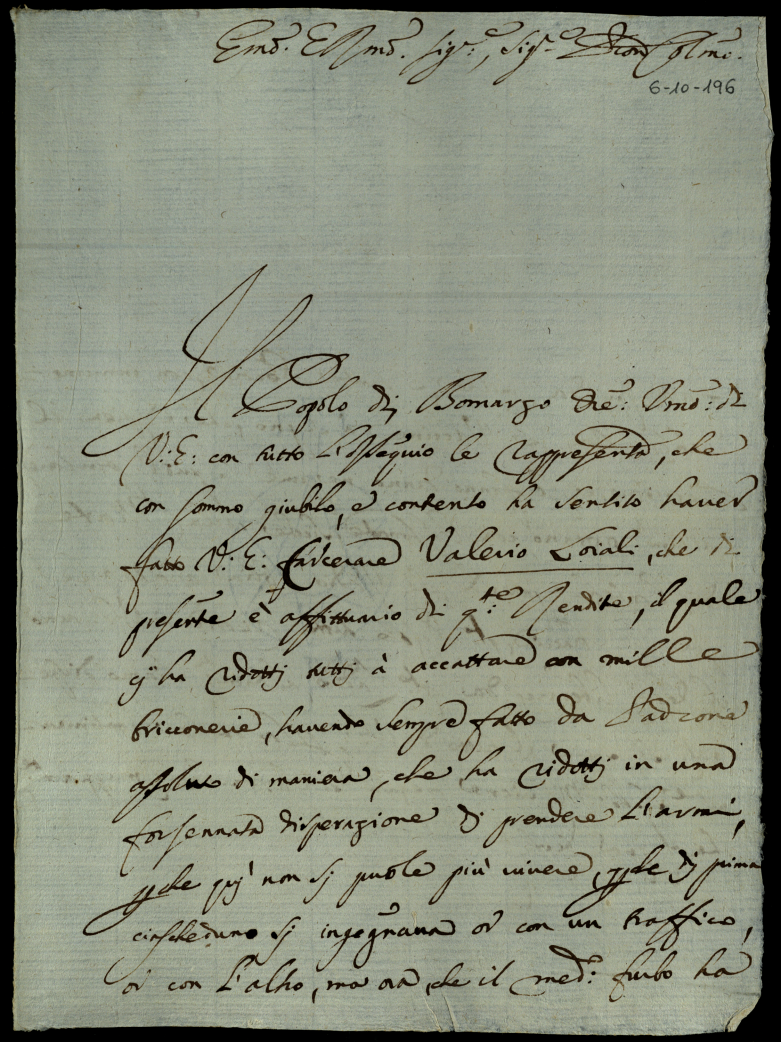 Emo: E Rmo. Sig:re, Sig:re Pron Colmo.
6-10-196
Il Popolo di Bomarzo Ore: Umo: di
V: E: con tutto L'Ossequio le rappresenta, che
con sommo giubilo, e contento ha sentito haver
fatto V: E: Carcerare Valerio Loiali, che di
presente è affittuario di q:te Rendite, il quale
cj ha ridottj tuttj à accattare con mille
bricconerie, havendo sempre fatto da Padrone
assoluto di maniera, che ha ridottj in una
forsennata disperazione di prendere L'armi,
pche quì non sj puole più vivere, pche dj prima
ciascheduno sj ingegnava or con un traffico,
or con l'altro, ma ora, che il med:o furbo ha